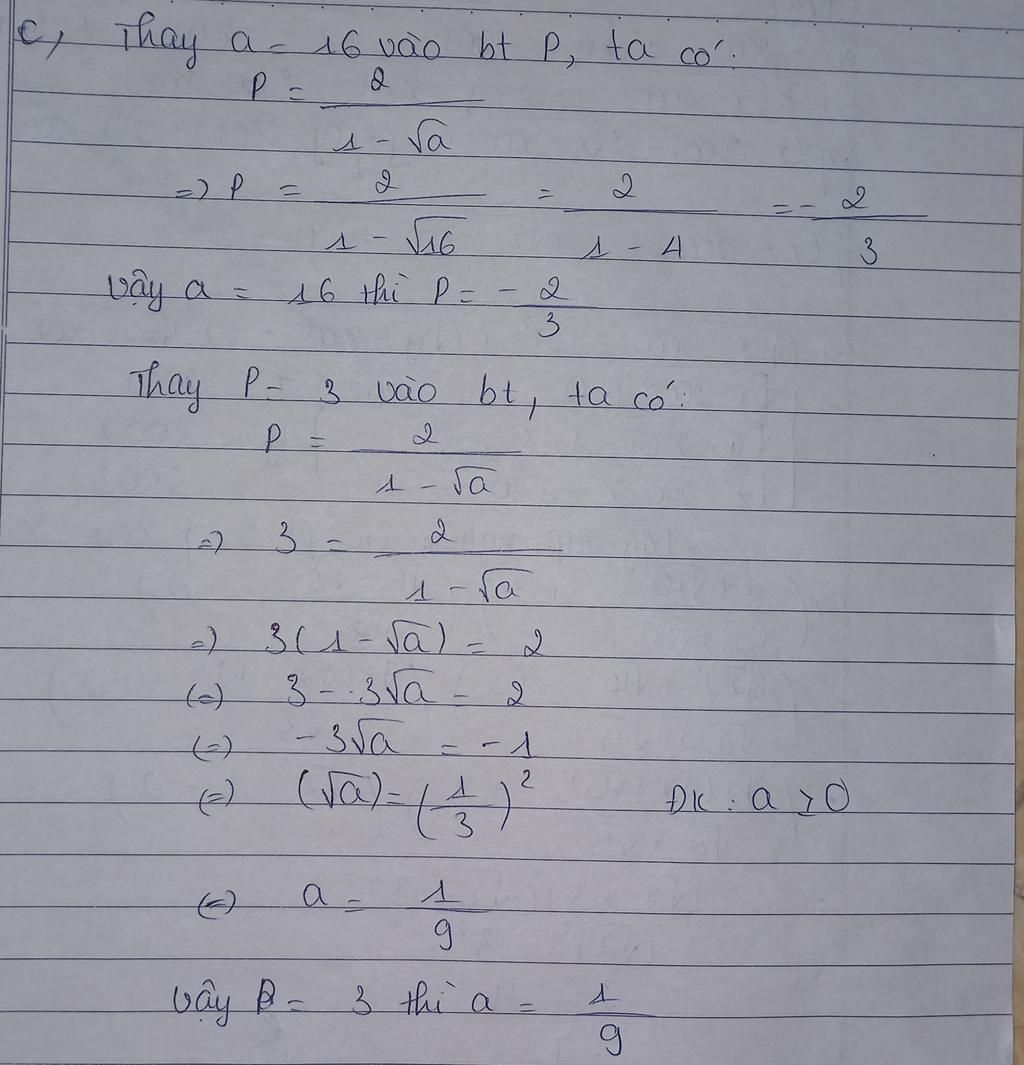 c, Thay a = 16 vào bt P, ta có:
P = 2 / (1 - √a)
=> P = 2 / (1 - √16) = 2 / (1 - 4) = - 2/3
Vậy a = 16 thì P = - 2/3
Thay P = 3 vào bt, ta có:
P = 2 / (1 - √a)
=> 3 = 2 / (1 - √a)
=> 3(1 - √a) = 2
(=) 3 - 3√a = 2
(=) -3√a = -1
(=) (√a) = (1/3)² ĐK: a ≥ 0
(=) a = 1/9
Vậy P = 3 thì a = 1/9